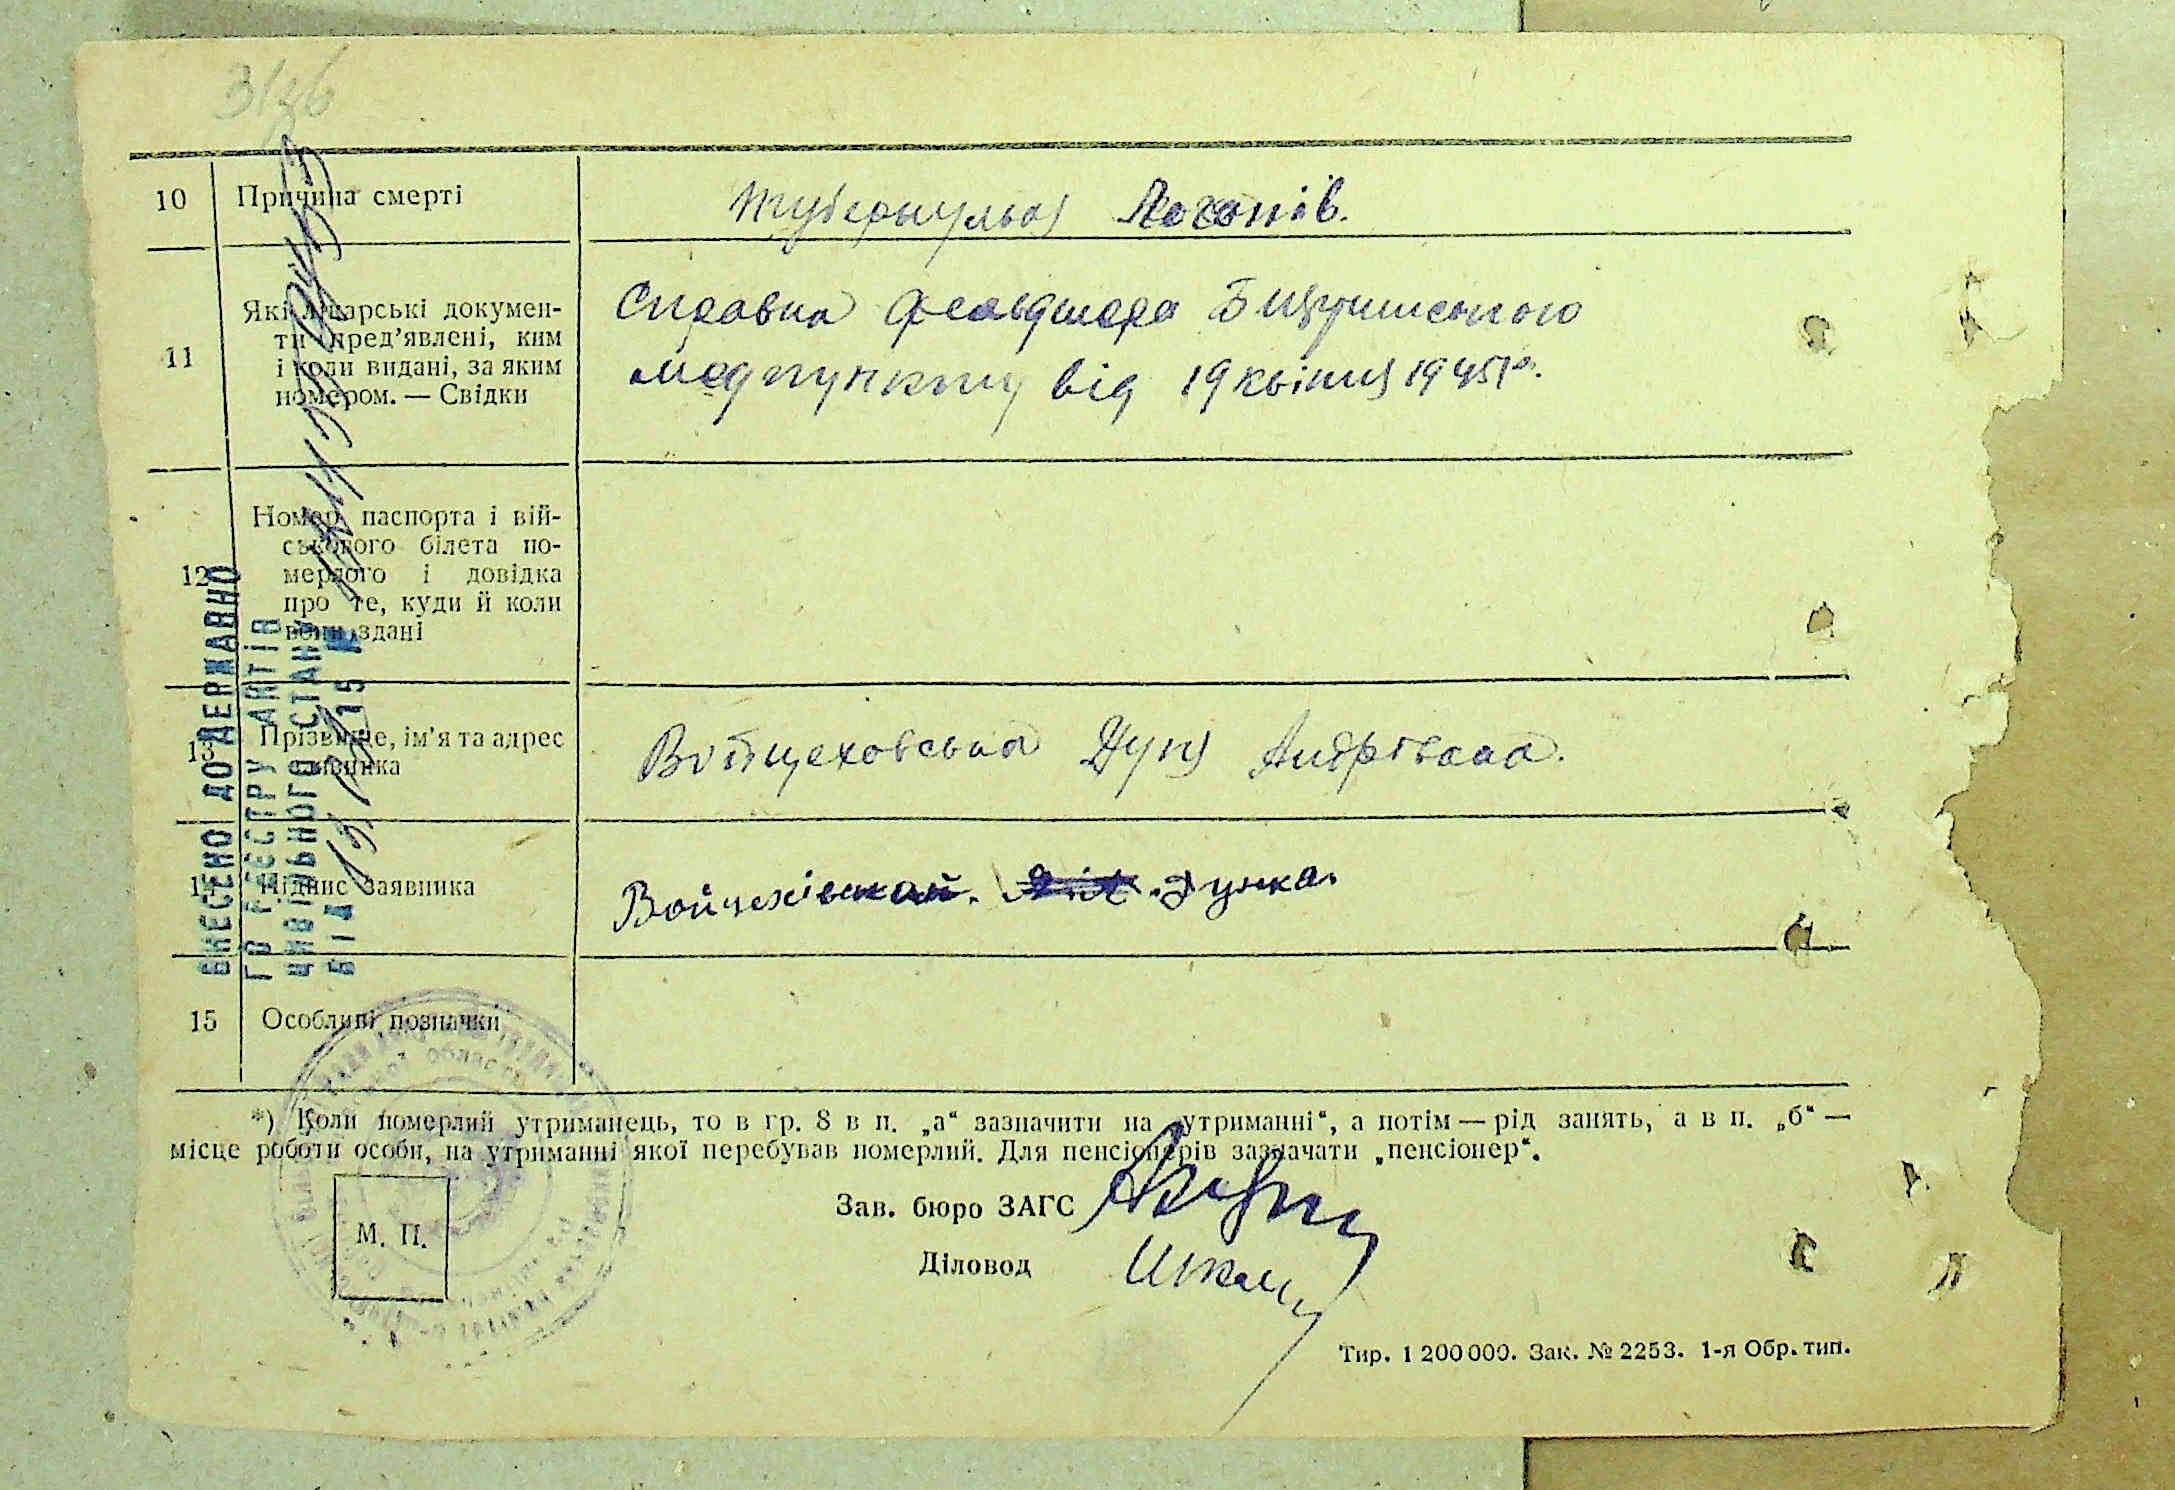 10 Причина смерті Туберкульоз Легенів.
11 Які лікарські докумен-
ти пред’явлені, ким
і коли видані, за яким
номером. — Свідки
Справка фельдшера
медпункту від 19 квітня 1945 р.
12 Номер паспорта і вій-
ськового білета по-
мерлого і довідка
про те, куди й коли
вони здані
13 Прізвище, ім’я та адрес
заявника
Войцеховська Андрієвна.
14 Підпис заявника
15 Особливі позначки
ВНЕСЕНО ДО ДЕРЖАВНО
ГО РЕЄСТРУ АКТІВ
ЦИВІЛЬНОГО СТАНУ
ВІД
*) Коли померлий утриманець, то в гр. 8 в п. „а“ зазначити „на утриманні“, а потім — рід занять, а в п. „б“ —
місце роботи особи, на утриманні якої перебував померлий. Для пенсіонерів зазначати „пенсіонер“.
М. П.
Зав. бюро ЗАГС
Діловод
Тир. 1 200 000. Зак. № 2253. 1-я Обр. тип.